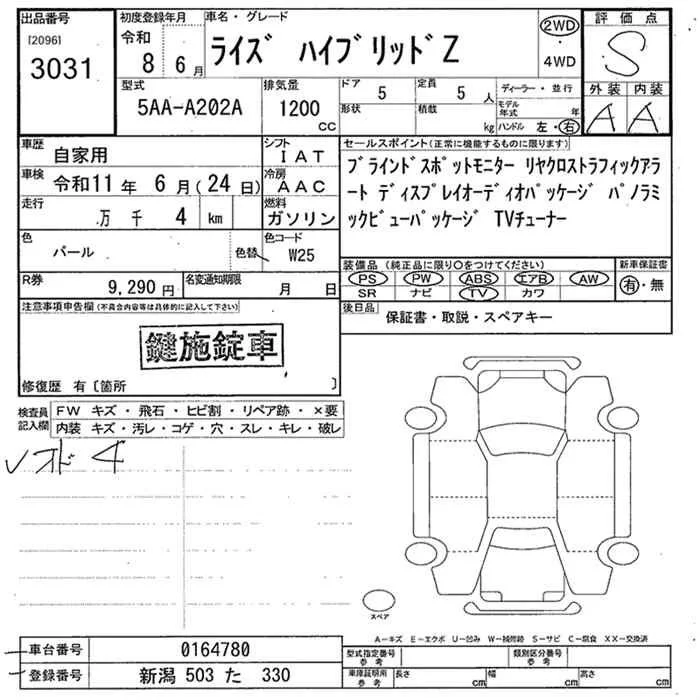 出品番号
[2096]
3031
初度登録年月
令和
8 6月
車名・グレード
ライズ ハイブリッドZ
2WD
・
4WD
評価点
S
外装 内装
A A
型式
5AA-A202A
排気量
1200
cc
ドア
5
形状
定員
5 人
積載
kg
ディーラー・並行
モデル
年式 年
ハンドル 左・右
車歴
自家用
シフト
IAT
車検
令和11年 6月(24日)
冷房
AAC
走行
万 千 4 km
燃料
ガソリン
色
パール
色替
色コード
W25
R券
9,290円
名変通知期限
月 日
セールスポイント(正常に機能するものに限ります)
ブラインドスポットモニター リヤクロストラフィックアラ
ート ディスプレイオーディオパッケージ パノラミ
ックビューパッケージ TVチューナー
装備品(純正品に限り○をつけてください)
PS PW ABS エアB AW
SR ナビ TV カワ
新車保証書
有・無
後日品
保証書・取説・スペアキー
注意事項申告欄(不具合内容等は具体的に記入して下さい)
鍵施錠車
修復歴 有〔箇所 〕
検査員
記入欄
FW キズ・飛石・ヒビ割・リペア跡・×要
内装 キズ・汚レ・コゲ・穴・スレ・キレ・破レ
スペア
A―キズ E―エクボ U―凹み W―補修跡 S―サビ C―腐食 XX―交換済
車台番号
0164780
登録番号
新潟 503 た 330
型式指定番号
参考
類別区分番号
参考
車庫証明用
参考
長さ cm
幅 cm
高さ cm